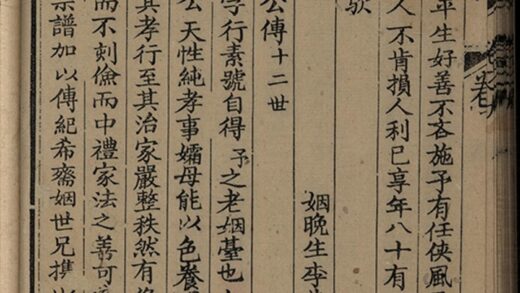 卷
平生好善不吝施予有任俠風
人不肯損人利已享年八十有
欤
姻晚生李
公傳十二世
字行素號自得予之老姻臺也
公天性純孝事孀母能以色養
其孝行至其治家嚴整秩然有
而不刻儉而中禮家法之善可
宗譜加以傳紀希齋姻世兄携